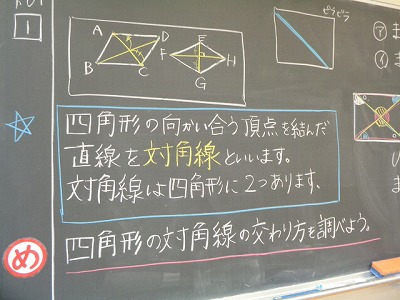 1
A D
B C
E
F H
G
ビラビラ
ア
イ
四角形の向かい合う頂点を結んだ
直線を対角線といいます。
対角線は四角形に2つあります。
め
四角形の対角線の交わり方を調べよう。